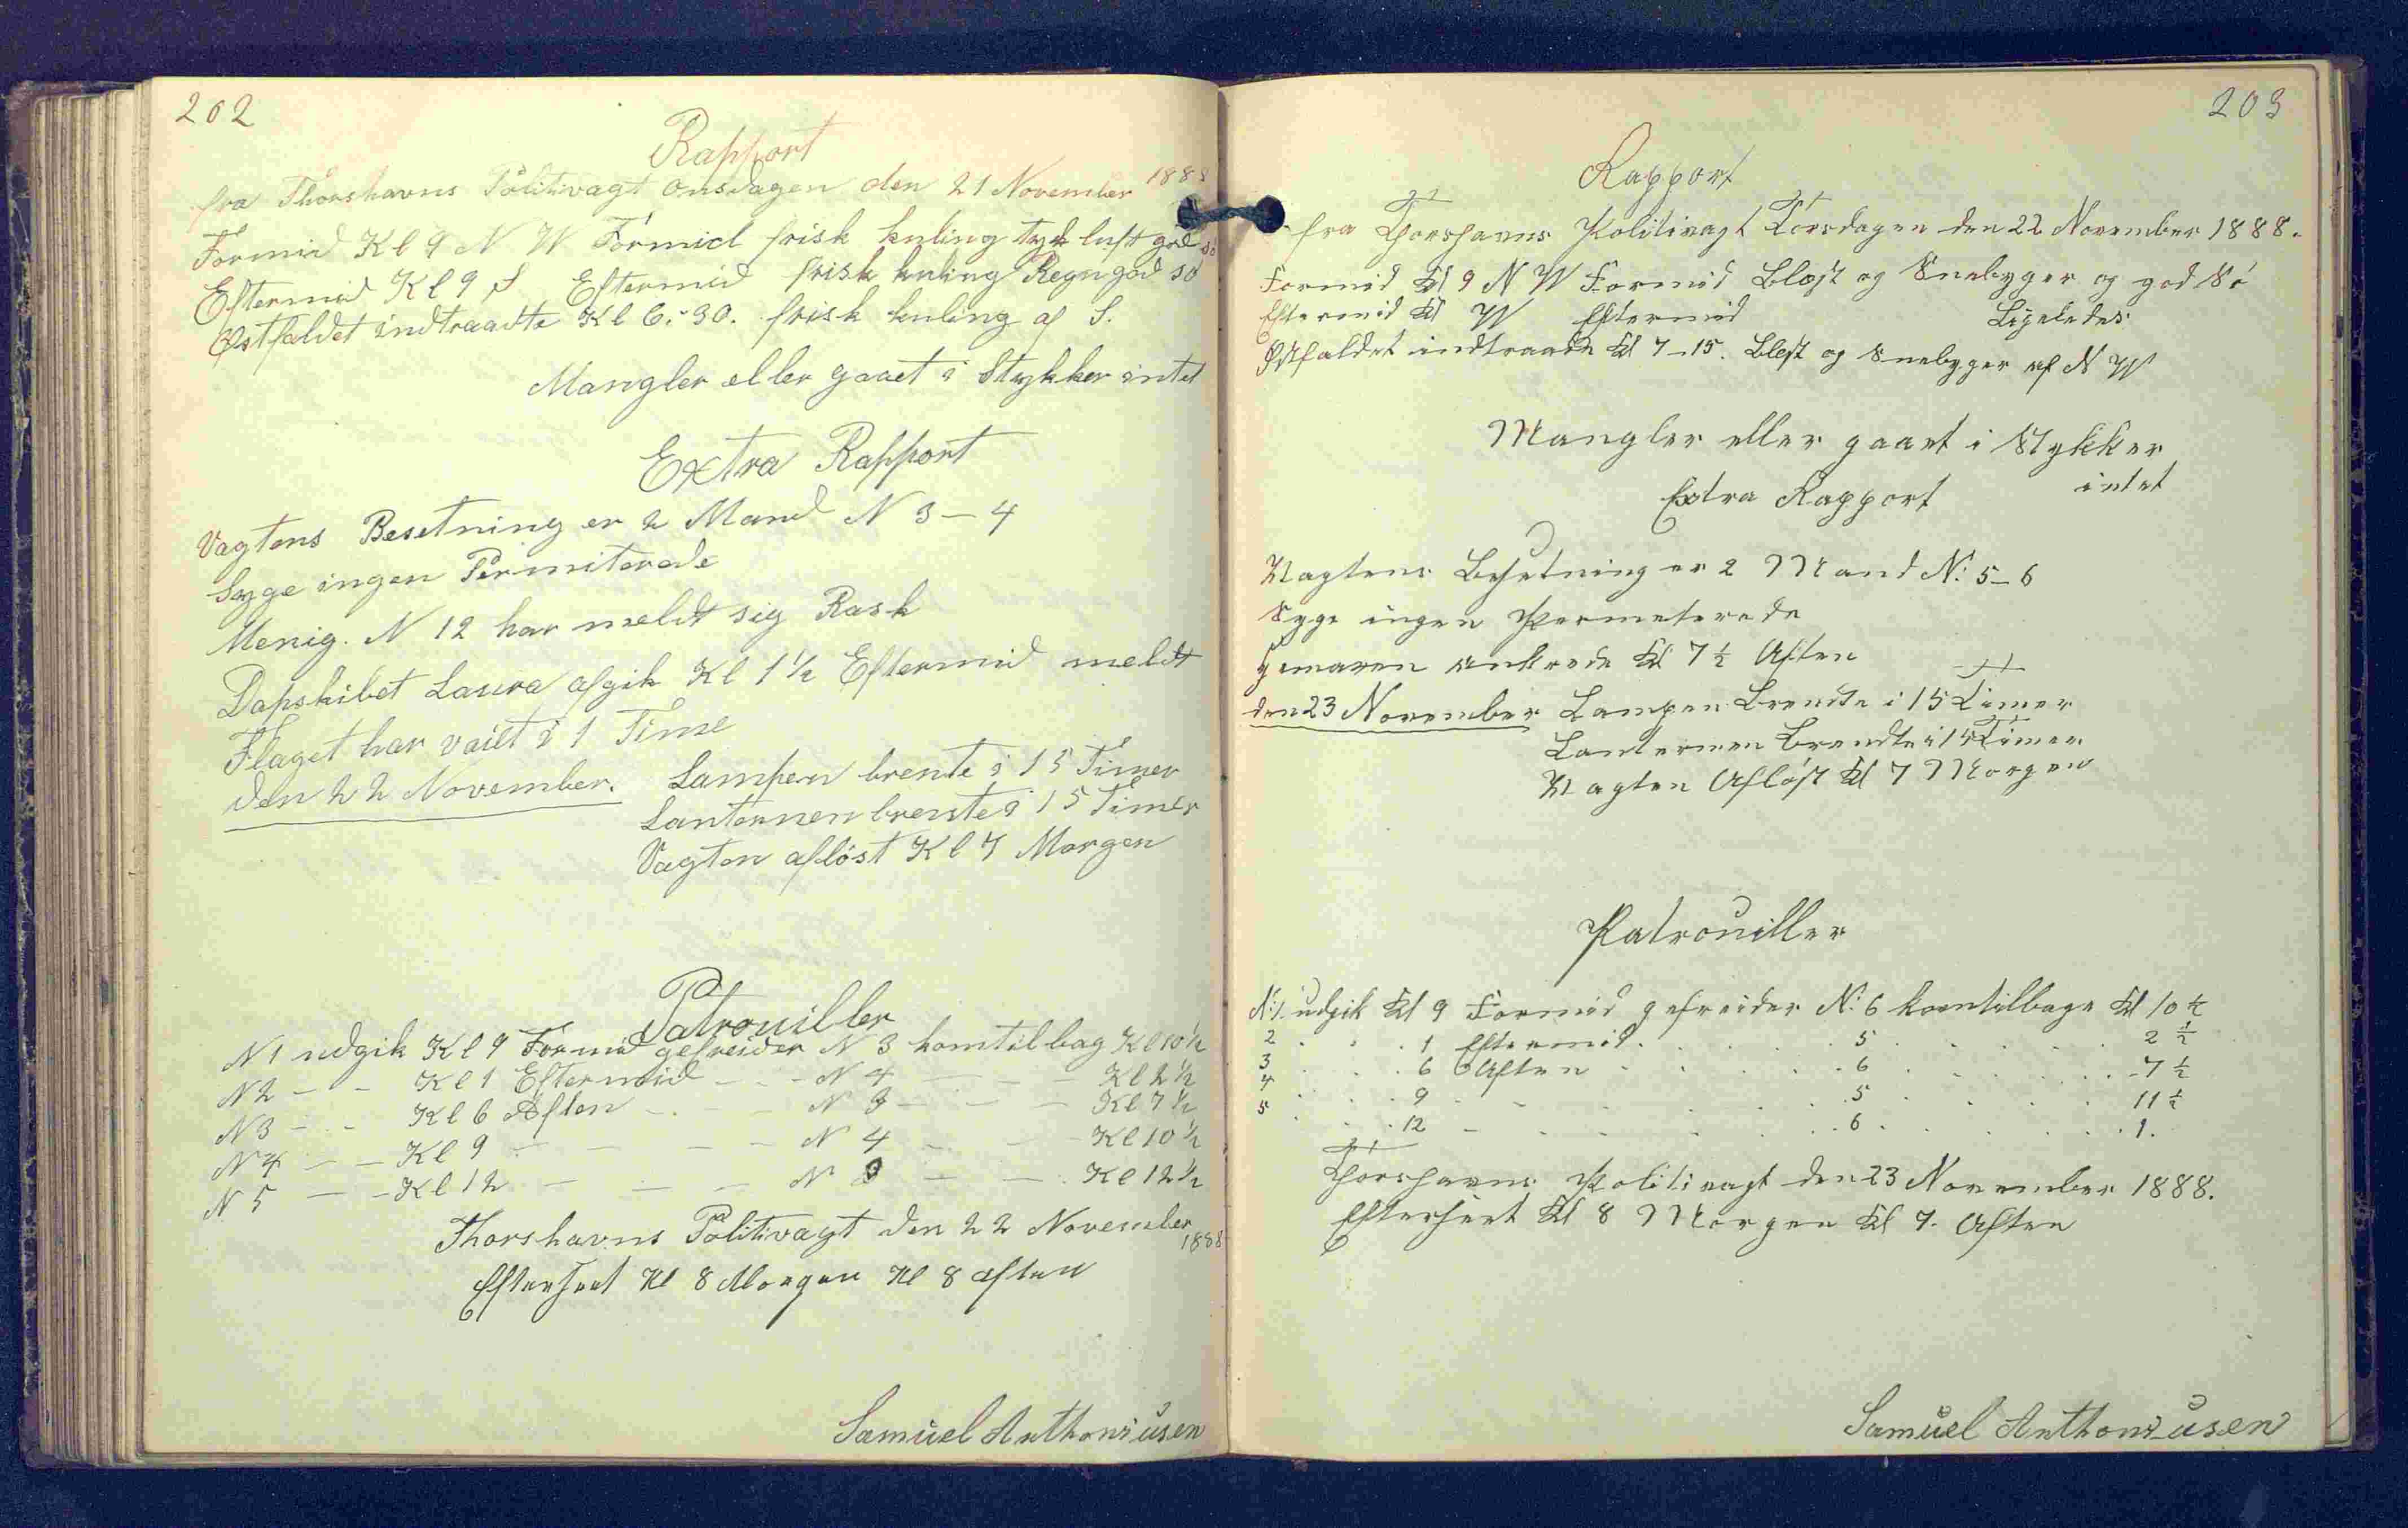 202
Rapport
fra Thorshavns Politivagt Onsdagen den 21 November 1888
Formid Kl 9 N W Formid frisk kuling tyk luft god sö
Eftermid Kl 9 S Eftermid frisk kuling Regn god sö
Østfaldet indtraadte Kl 6.-30. frisk kuling af S.
Mangler eller gaaet i Stykker intet
Extra Rapport
Vagtens Besetning er 2 Mand N 3-4
Syge ingen Permiterede
Menig. N 12 har meldt sig Rask
Dapskibet Laura afgik Kl 1½ Eftermid meldt
Flaget har vaiet i 1 Time
den 22 November. Lampen brente i 15 Timer
Lanternen brente i 15 Timer
Vagten aflöst Kl 7 Morgen
Patrouiller
N 1 udgik Kl 9 Formid gefreider N 3 komtilbag Kl 10½
N 2 - - Kl 1 Eftermid - - - N 4 - - - Kl 2½
N 3 - - Kl 6 Aften - - - N 3 - - - Kl 7½
N 4 - - Kl 9 - - - - N 4 - - - Kl 10½
N 5 - - Kl 12 - - - - N 3 - - Kl 12½
Thorshavns Politivagt den 22 November 1888
Efterseet Kl 8 Morgen Kl 8 Aften
Samuel Anthoniusen
203
Rapport
fra Thorshavns Politivagt Torsdagen den 22 November 1888.
Formid Kl 9 N W Formid Blæst og Snebyger og god Sö
Eftermid Kl W Eftermid Ligeledes
Østfaldet indtraadte Kl 7-15. Blæst og Snebyger af N W
Mangler eller gaaet i Stykker
intet
Extra Rapport
Vagtens Besetning er 2 Mand N: 5-6
Syge ingen Permeterede
ankrede Kl 7½ Aften
den 23 November Lampen Brendte i 15 Timer
Lanternen Brendte i 15 Timer
Vagten Aflöst Kl 7 Morgen
Patrouiller
N: 1. udgik Kl 9 Formid gefreider N: 6 komtilbage Kl 10½
2 . . . 1 Eftermid . . . . 5 . . . . 2½
3 . . . 6 Aften . . . . 6 . . . . 7½
4 . . . 9 - . . . . 5 . . . . 11½
5 . . . 12 - . . . . 6 . . . . 1.
Thorshavns Politivagt den 23 November 1888.
Efterseet Kl 8 Morgen Kl 7. Aften
Samuel Anthoniusen